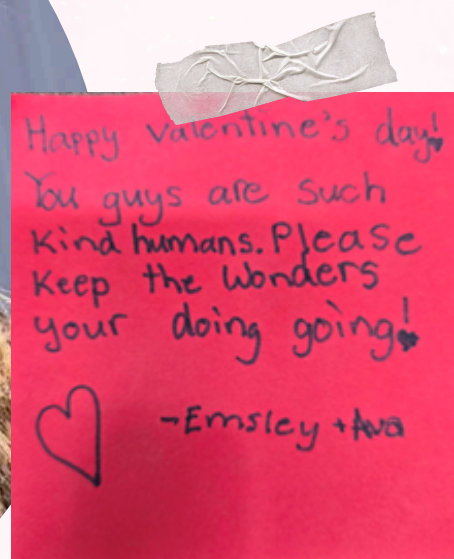 Happy Valentine's day!
You guys are such
Kind humans. Please
Keep the Wonders
your doing going!
-Emsley + Ava